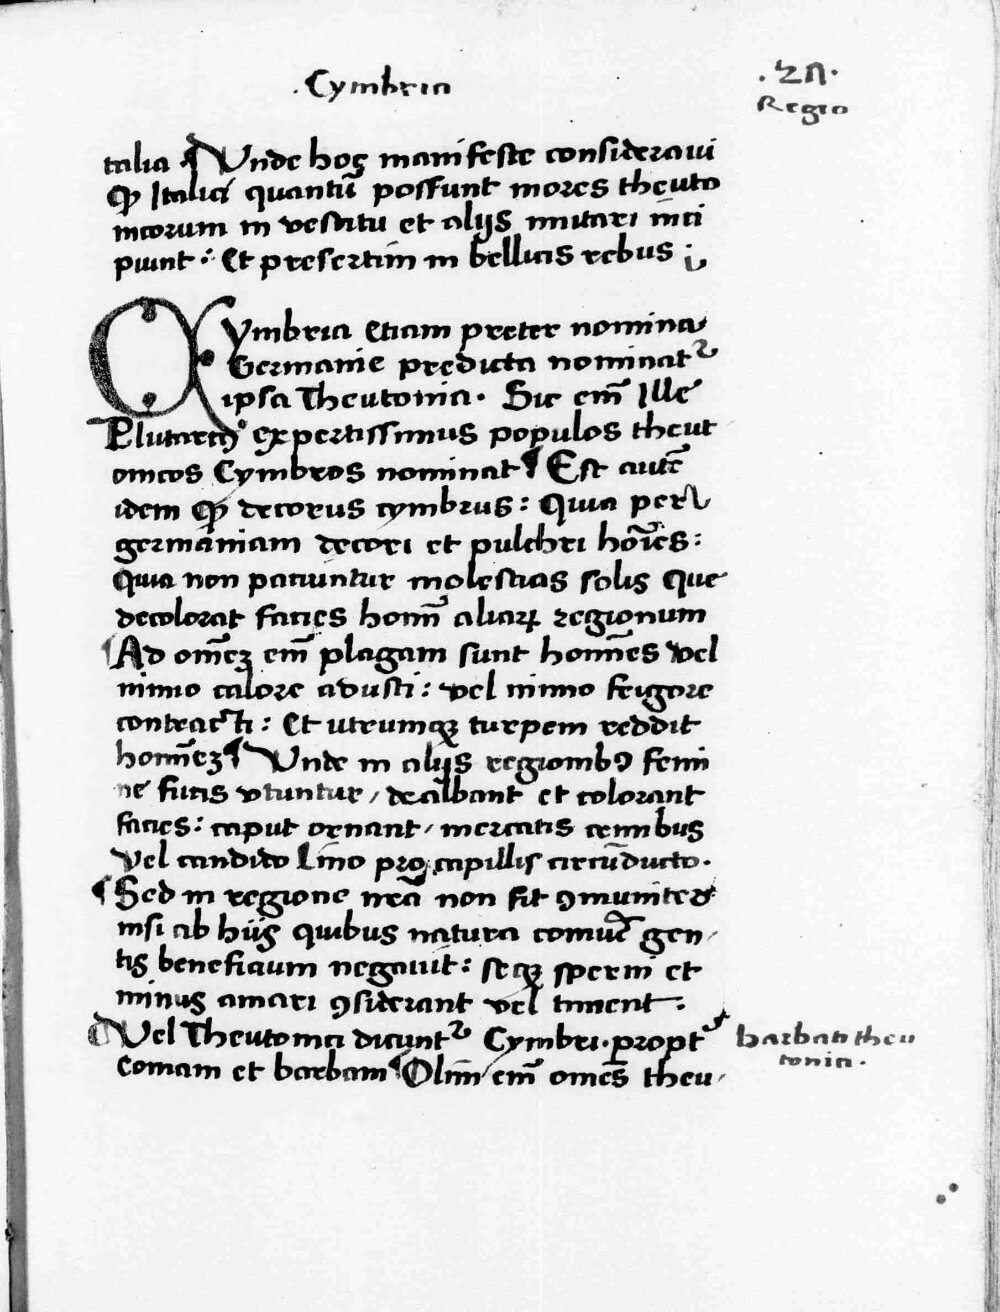 . Cymbria
. 27 .
Regio
talia ¶ Vnde hoc manifeste consideraui
ꝙ Italici quantū possunt mores theuto
nicorum in vestitu et alijs imitari inci
piunt : Et presertim in bellicis rebus ;
CYmbria etiam preter nomina
Germanie predicta nominatᷣ
ipsa Theutonia . Sic em̄ Ille
Plutarcꝰ expertissimus populos theut
onicos Cymbros nominat ¶ Est autē
idem ꝙ decorus cymbrus : Quia per
germaniam decori et pulchri hoīes :
Quia non patiuntur molestias solis que
decolorat facies hoīm̄ aliaꝝ regionum
¶ Ad om̄eꝫ em̄ plagam sunt homīes vel
nimio calore adusti : vel nimio frigore
contracti : Et utrumqꝫ turpem reddit
homīeꝫ ¶ Vnde in alijs regionibꝰ femi
ne fucis vtuntur / dealbant et colorant
facies : caput ornant / mercatis crinibus
vel candido lino pro capillis circūducto .
¶ Sed in regione nr̄a non fit ꝯmuniter
nisi ab hijs quibus natura comūe gen
tis beneficium negauit : seqꝫ sperni et
minus amari ꝯsiderant vel timent .
¶ Vel Theutonici dicuntᷣ Cymbri . propt̄
comam et barbam ¶ Olim em̄ omēs theu
barbati theu
tonici .